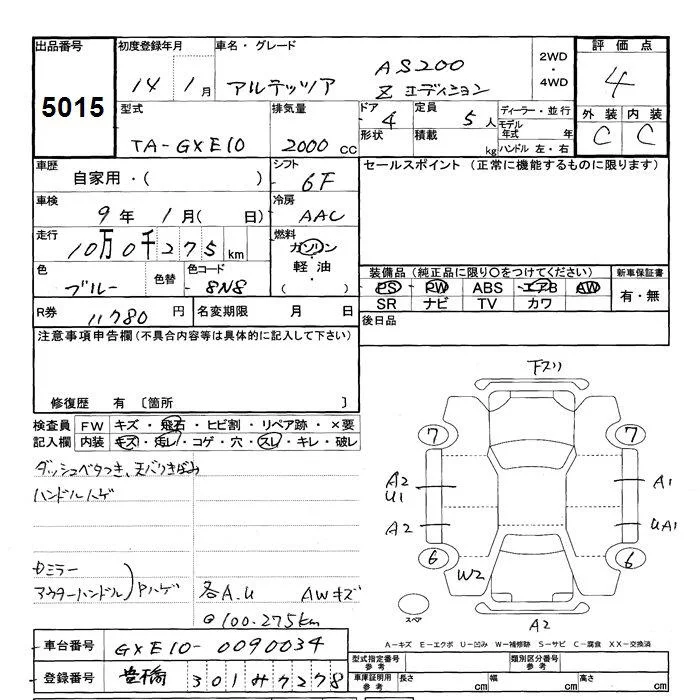 出品番号 初度登録年月 車名・グレード 2WD・4WD 評価点
5015 14年 1月 アルテッツァ AS200 Zエディション 4
型式 排気量 ドア 4 定員 5人 ディーラー・並行 外装 内装
TA-GXE10 2000cc 形状 積載 kg モデル年式 年 C C
ハンドル 左・右
車歴 シフト セールスポイント (正常に機能するものに限ります)
自家用・( ) 6F
車検 冷房
9年 1月( 日) AAC
走行 燃料
10万0千275km ガソリン
軽油
( )
色 色替 色コード
ブルー 8N8
装備品 (純正品に限り○をつけてください) 新車保証書
PS PW ABS エアB AW 有・無
SR ナビ TV カワ
R券 11780円 名変期限 月 日 後日品
注意事項申告欄(不具合内容等は具体的に記入して下さい)
修復歴 有 〔箇所 〕
検査員 FW キズ・飛石・ヒビ割・リペア跡・×要
記入欄 内装 キズ・汚レ・コゲ・穴・スレ・キレ・破レ
ダッシュベタつき、天バリきばみ
ハンドルハゲ
Dミラー
アウターハンドル Pハゲ
各A.U AWキズ
@100.275km
下スリ
7 7
A2 A1
U1
A2 UA1
6 6
W2
スペア
A2
A-キズ E-エクボ U-凹み W-補修跡 S-サビ C-腐食 XX-交換済
車台番号 GXE10-0090034 型式指定番号 参考 類別区分番号 参考
登録番号 豊橋 301 m7278 車庫証明用 参考 長さ cm 幅 cm 高さ cm